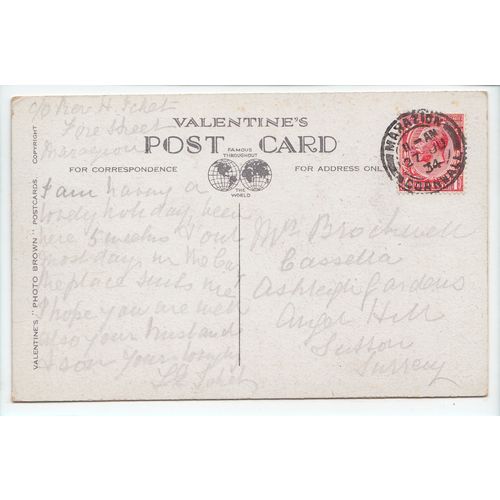 c/o Rev H.
Fore Street
Marazion
VALENTINE'S
POST CARD
FAMOUS
THROUGHOUT
THE
WORLD
FOR CORRESPONDENCE
FOR ADDRESS ONLY
VALENTINE'S "PHOTO BROWN" POSTCARDS. COPYRIGHT
MARAZION
AM
34
CORNWALL
I am having a
lovely holiday, been
here 5 weeks & out
most days in
the place suits me
I hope you are well
also your husband
& son Your loving
Mrs Brockwell
Cassella
Ashleigh Gardens
Angel Hill
Sutton
Surrey